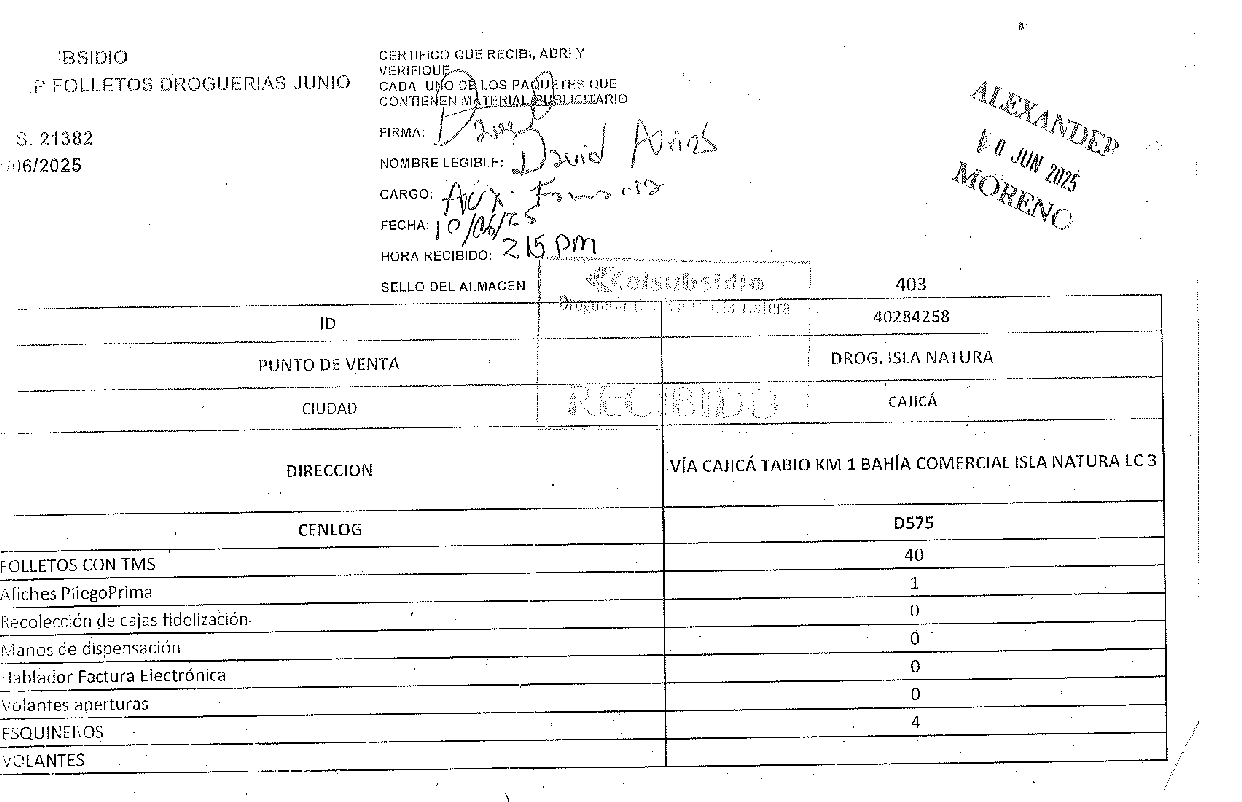 BSIDIO
P FOLLETOS DROGUERIAS JUNIO
S. 21382
06/2025
CERTIFICO QUE RECIBI, ABRI Y
VERIFIQUE
CADA UNO DE LOS PAQUETES QUE
CONTIENEN MATERIAL PUBLICITARIO
FIRMA:
NOMBRE LEGIBLE: David Arias
CARGO: Aux. Farmacia
FECHA: 10/06/25
HORA RECIBIDO: 2 15 pm
SELLO DEL ALMACEN
ALEXANDER
10 JUN 2025
MORENO
Colsubsidio
RECIBIDO
403
ID 40284258
PUNTO DE VENTA DROG. ISLA NATURA
CIUDAD CAJICÁ
DIRECCION VÍA CAJICÁ TABIO KM 1 BAHÍA COMERCIAL ISLA NATURA LC 3
CENLOG D575
FOLLETOS CON TMS 40
Afiches PliegoPrima 1
Recolección de cajas fidelización 0
Manos de dispensación 0
Hablador Factura Electrónica 0
Volantes aperturas 0
ESQUINEROS 4
VOLANTES